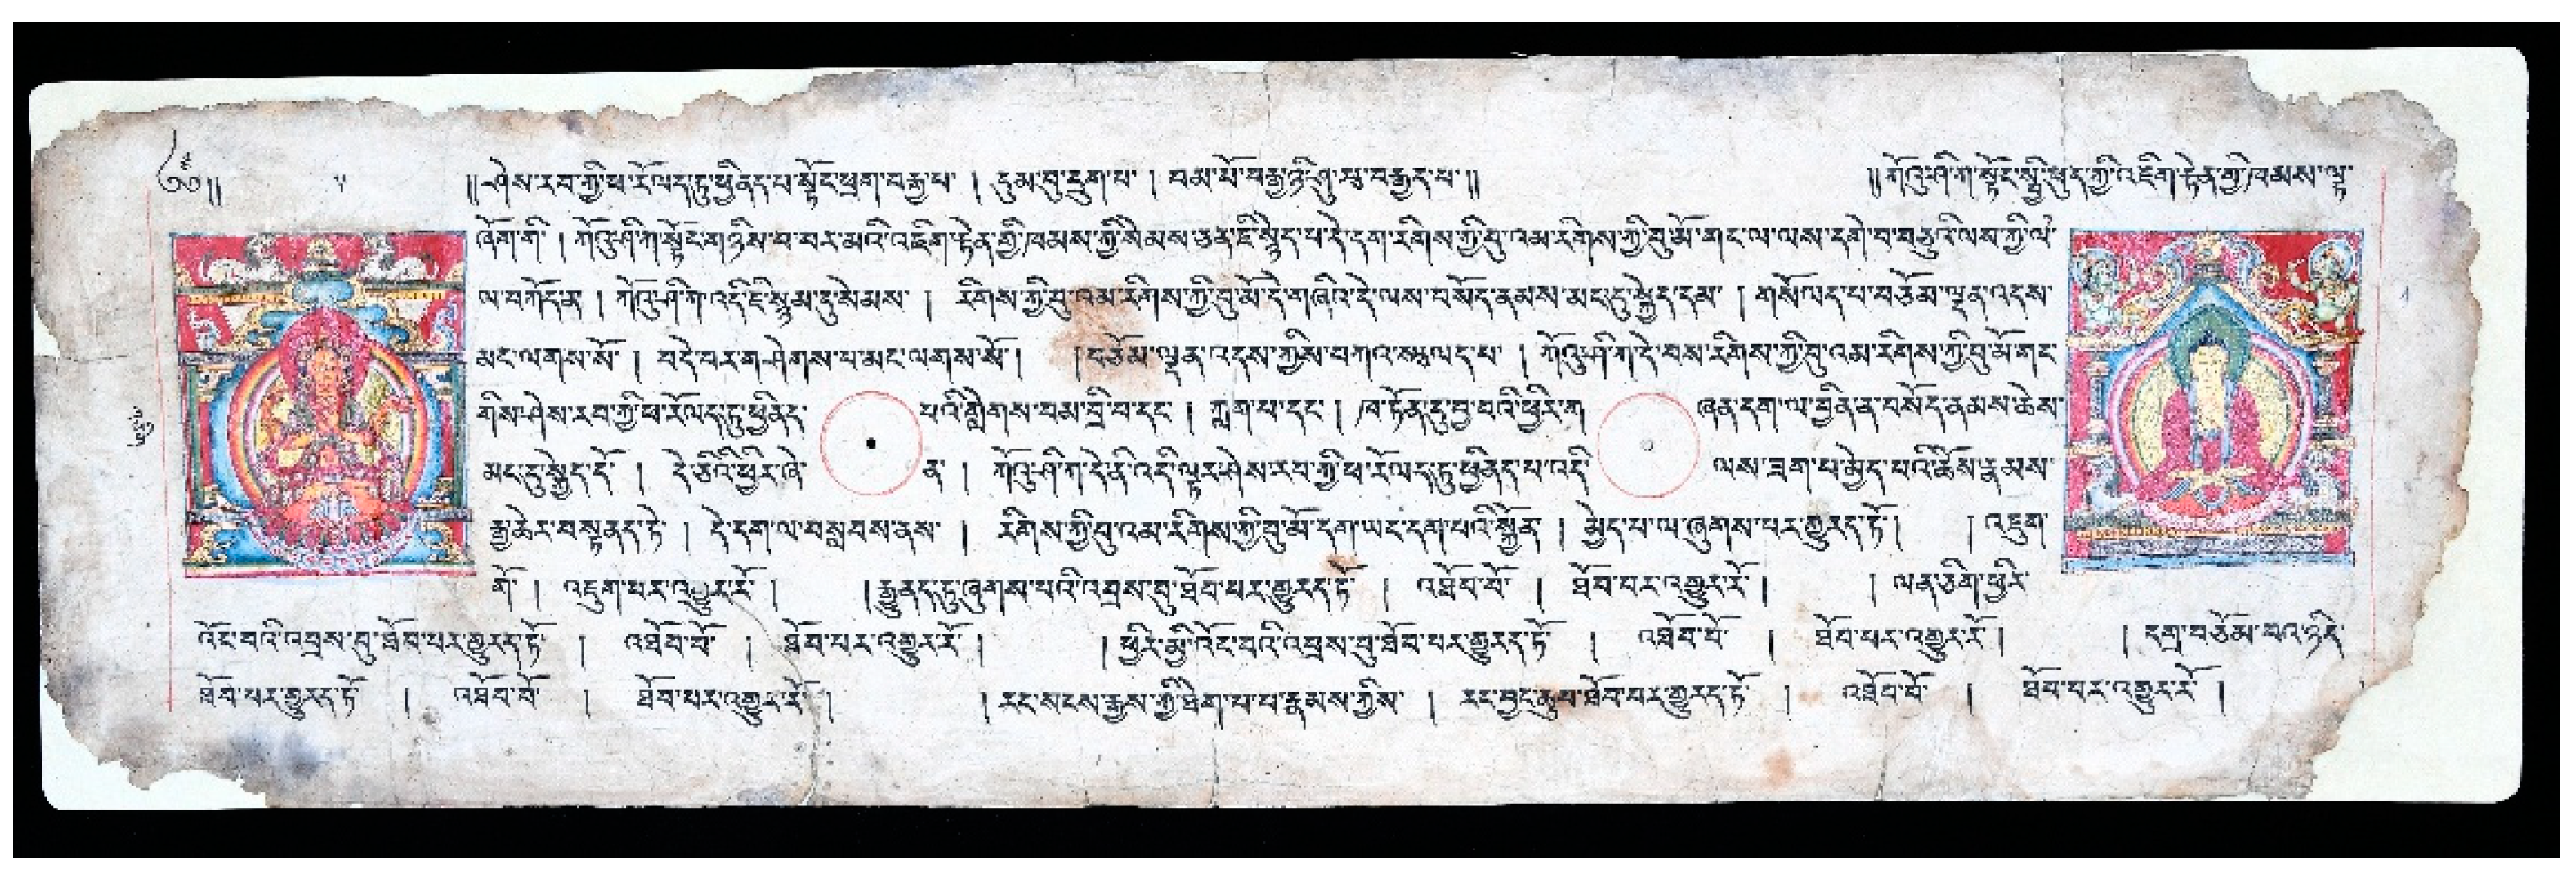 ༄༅༅།། །།ཤེས་རབ་ཀྱི་ཕ་རོལད་ཏུ་ཕྱིནད་པ་སྟོང་ཕྲག་བརྒྱ་པ་ ། དུམ་བུ་དྲུག་པ་ ། བམ་པོ་བརྒྱ་ཉི་ཤུ་ལྔ་བརྒྱད་པ་།། །།ཀོའུ་ཤི་ཀ་སྟོང་སྤྱི་ཕུད་ཀྱི་འཇིག་རྟེན་གྱི་ཁམས་ལྟ་
ཞོག་གི་ ། ཀོའུ་ཤི་ཀ་སྟོང་གཉིས་པ་བར་མའི་འཇིག་རྟེན་གྱི་ཁམས་ཀྱི་སེམས་ཅན་ཇི་སྙེད་པ་དེ་དག་རིགས་ཀྱི་བུ་འམ་རིགས་ཀྱི་བུ་མོ་གང་ལ་ལས་དགེ་བ་བཅུའི་ལས་ཀྱི་ལ་
ལ་བཀོད་ན ། ཀོའུ་ཤི་ཀ་འདི་ཇི་སྙམ་དུ་སེམས་ ། རིགས་ཀྱི་བུ་འམ་རིགས་ཀྱི་བུ་མོ་དེ་གཞི་དེ་ལས་བསོད་ནམས་མང་དུ་སྐྱེད་དམ་ ། གསོལད་པ་བཅོམ་ལྡན་འདས་
མང་ལགས་སོ་ ། བདེ་བར་གཤེགས་པ་མང་ལགས་སོ། །བཅོམ་ལྡན་འདས་ཀྱིས་བཀའ་སྩལད་པ་ ། ཀོའུ་ཤི་ཀ་དེ་བས་རིགས་ཀྱི་བུ་འམ་རིགས་ཀྱི་བུ་མོ་གང་
གིས་ཤེས་རབ་ཀྱི་ཕ་རོལད་ཏུ་ཕྱིནད་ པའི་གླེགས་བམ་བྲི་བ་དང ། ཀླག་པ་དང ། ཁ་ཏོན་དུ་བྱ་བའི་ཕྱིར་ག ཞན་དག་ལ་བྱིན་ན་བསོད་ནམས་ཆེས་
མང་དུ་སྐྱེད་དོ ། དེ་ཅིའི་ཕྱིར་ཞེ་ ན་ ། ཀོའུ་ཤི་ཀ་དེ་ནི་འདི་ལྟར་ཤེས་རབ་ཀྱི་ཕ་རོལད་ཏུ་ཕྱིནད་པ་འདི་ ལས་ཟག་པ་མྱེད་པའི་ཆོས་རྣམས་
རྒྱ་ཆེར་བསྟནད་ཏེ་ ། དེ་དག་ལ་བསླབས་ནས་ ། རིགས་ཀྱི་བུ་འམ་རིགས་ཀྱི་བུ་མོ་དག་ཡང་དག་པའི་སྐྱོན ། མྱེད་པ་ལ་ཞུགས་པར་གྱུརད་ཏོ། །འཇུག་
གོ་ ། འཇུག་པར་འགྱུར་རོ ། །རྒྱུནད་དུ་ཞུགས་པའི་འབྲས་བུ་ཐོབ་པར་གྱུརད་ཏོ་ ། འཐོབ་བོ་ ། ཐོབ་པར་འགྱུར་རོ ། །ལན་ཅིག་ཕྱིར་
འོང་བའི་འབྲས་བུ་ཐོབ་པར་གྱུརད་ཏོ་ ། འཐོབ་བོ་ ། ཐོབ་པར་འགྱུར་རོ ། །ཕྱིར་མྱི་འོང་བའི་འབྲས་བུ་ཐོབ་པར་གྱུརད་ཏོ་ ། འཐོབ་བོ་ ། ཐོབ་པར་འགྱུར་རོ ། །དགྲ་བཅོམ་བའ་ཉིད་
ཐོབ་པར་གྱུརད་ཏོ་ ། འཐོབ་བོ་ ། ཐོབ་པར་འགྱུར་རོ ། །རང་སངས་རྒྱས་ཀྱི་ཐེག་པ་པ་རྣམས་ཀྱིས་ ། རང་བྱང་ཆུབ་ཐོབ་པར་གྱུརད་ཏོ་ ། འཐོབ་བོ་ ། ཐོབ་པར་འགྱུར་རོ །